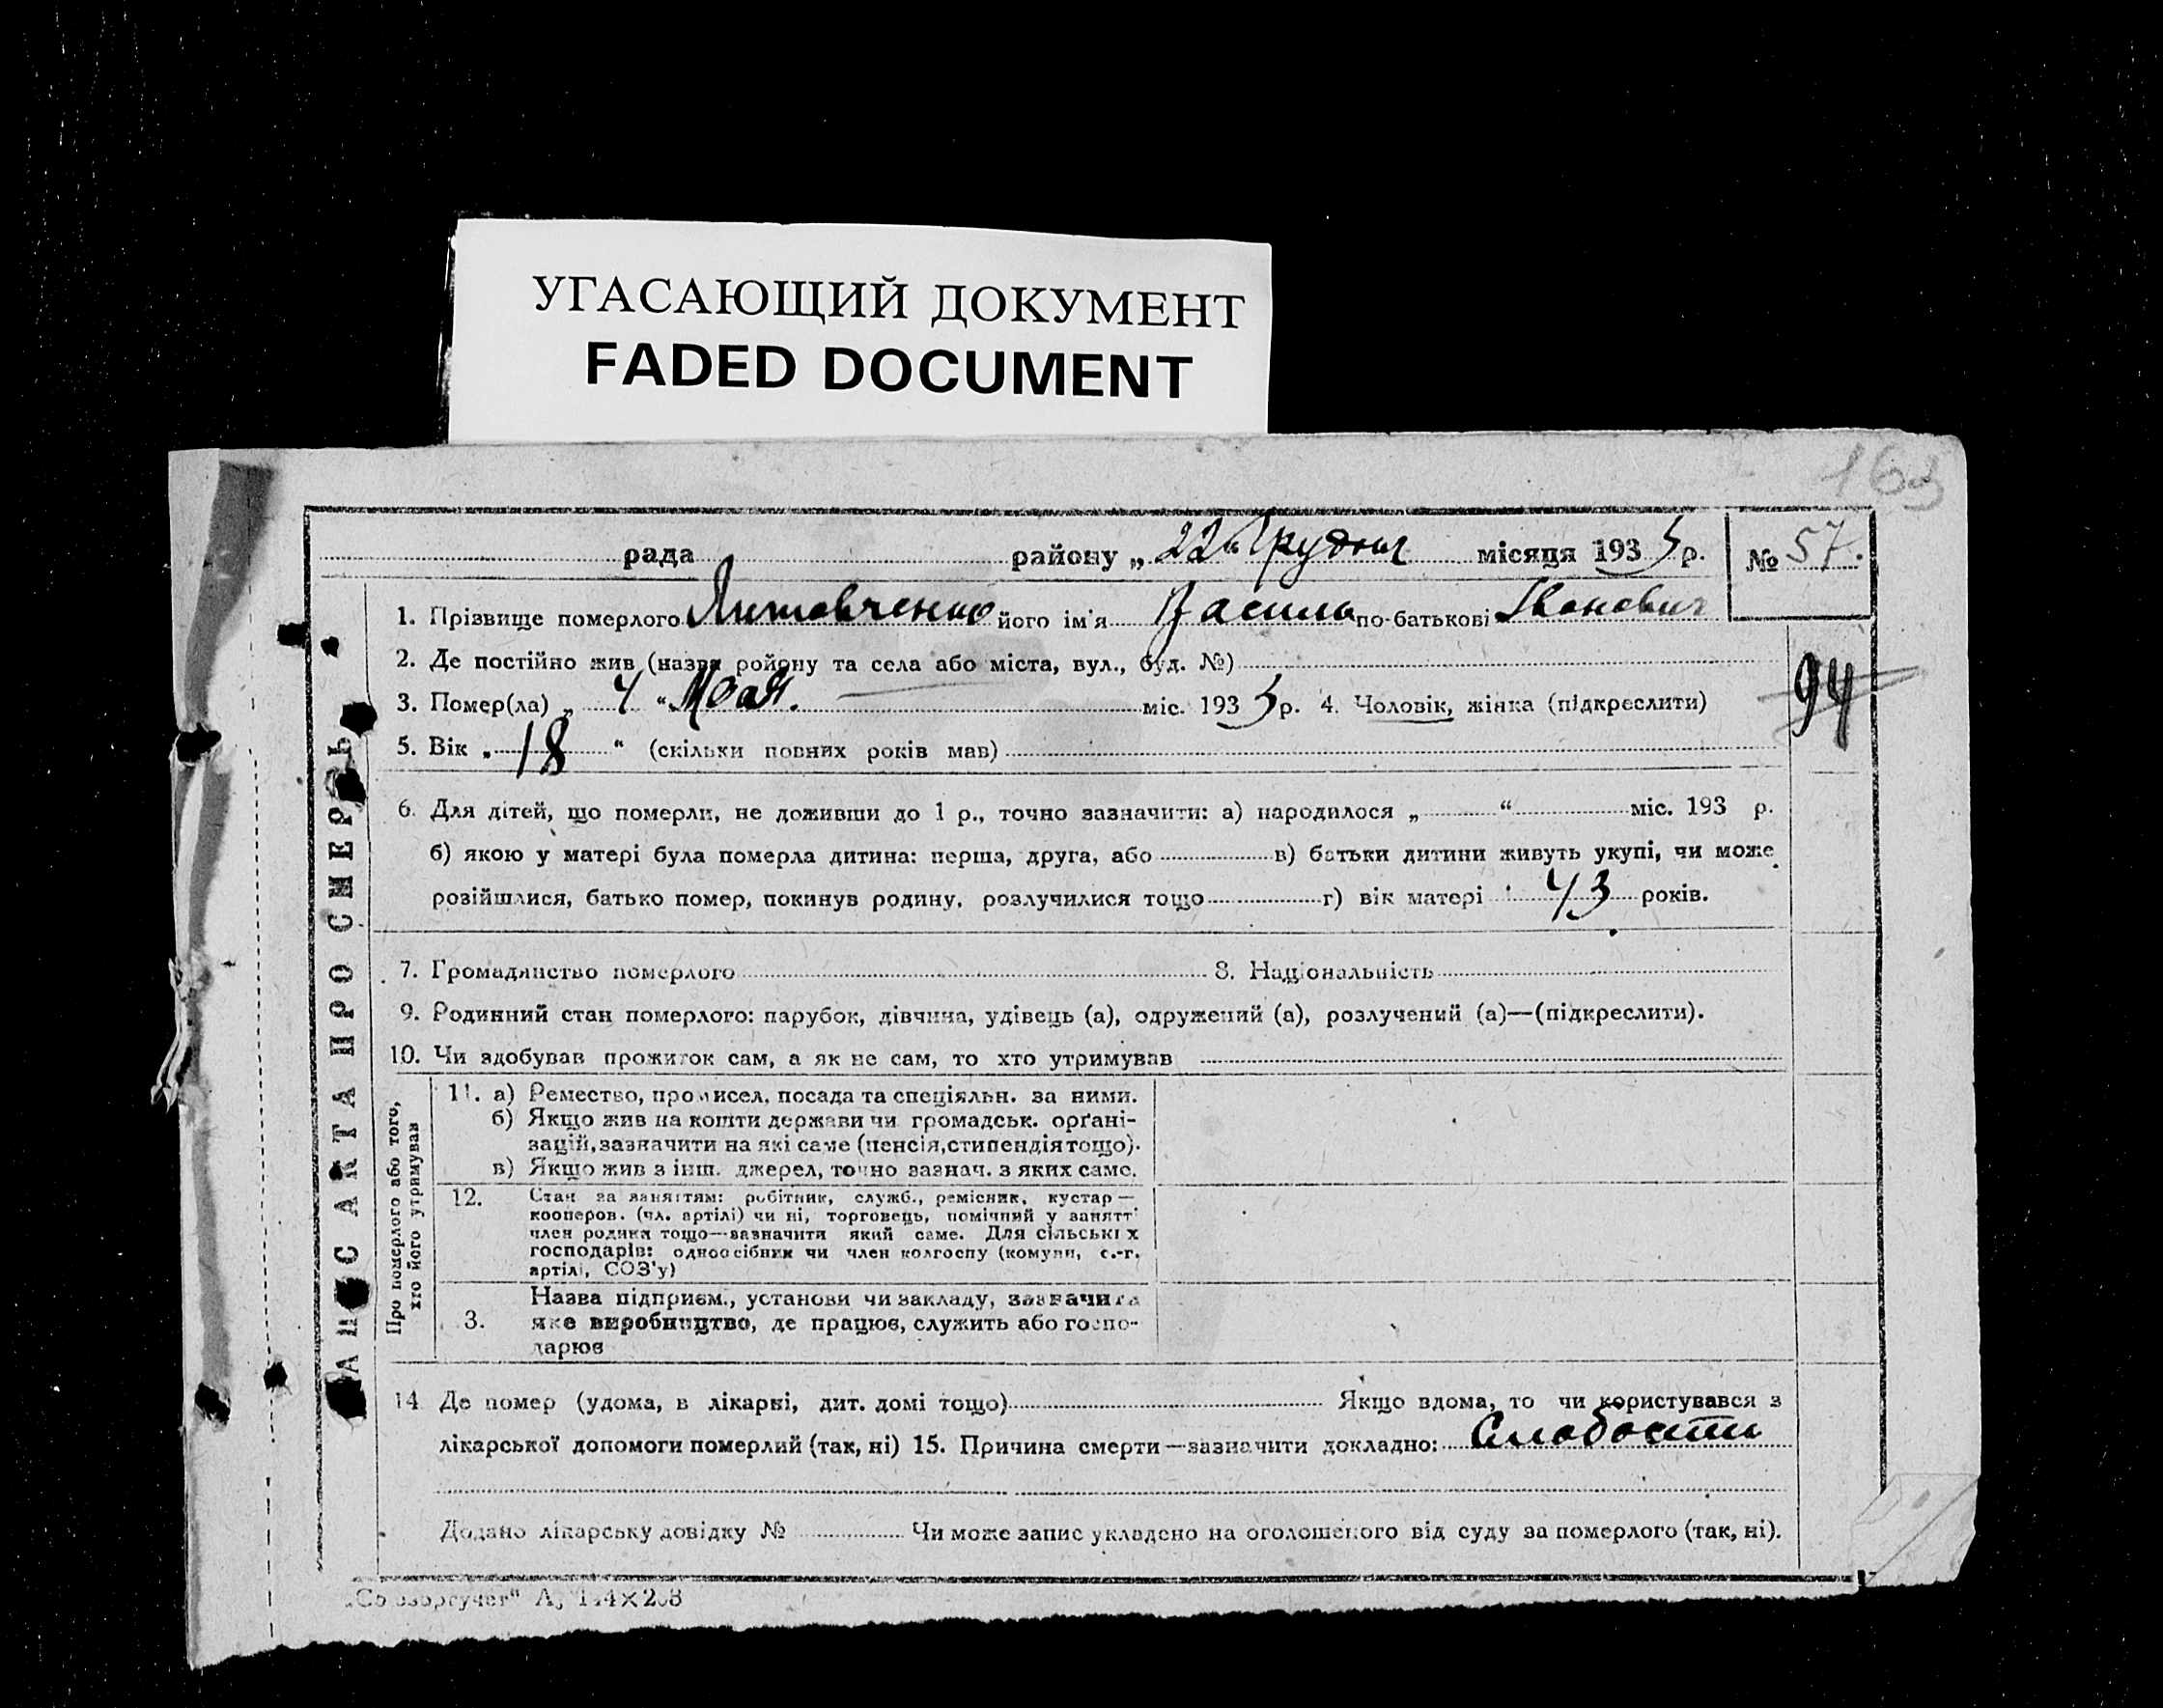 УГАСАЮЩИЙ ДОКУМЕНТ
FADED DOCUMENT
163
рада района „ 22 “ Грудня місяця 193 3 р. № 57.
1. Прізвище померлого Литовченко його ім'я Василь по-батькові Іванович
2. Де постійно жив (назва ройону та села або міста, вул., буд. №)
94
3. Помер(ла) „ 4 “ Мая. міс. 193 3 р. 4. Чоловік, жінка (підкреслити)
5. Вік „ 18 “ (скільки повних років мав)
6. Для дітей, що померли, не доживши до 1 р., точно зазначити: а) народилося „ “ міс. 193 р.
б) якою у матері була померла дитина: перша, друга, або в) батьки дитини живуть укупі, чи може
розійшлися, батько помер, покинув родину, розлучилися тощо г) вік матері 43 років.
7. Громадянство померлого 8. Національність
9. Родинний стан померлого: парубок, дівчина, удівець (а), одружений (а), розлучений (а)—(підкреслити).
10. Чи здобував прожиток сам, а як не сам, то хто утримував
Про померлого або того,
хто його утримував
11. а) Ремество, промисел, посада та спеціяльн. за ними.
б) Якщо жив на кошти держави чи громадськ. орґані-
зацій, зазначити на які саме (пенсія, стипендія тощо).
в) Якщо жив з інш. джерел, точно зазнач. з яких саме.
12. Стан за заняттям: робітник, служб., ремісник, кустар—
кооперов. (чл. артілі) чи ні, торговець, помічний у занятт
член родини тощо—зазначити який саме. Для сільських
господарів: одноосібник чи член колгоспу (комуни, с.-г.
артілі, СОЗ'у)
3. Назва підприєм., установи чи закладу, зазначити
яке виробництво, де працює, служить або госпо-
дарює
14 Де помер (удома, в лікарні, дит. домі тощо) Якщо вдома, то чи користувався з
лікарської допомоги померлий (так, ні) 15. Причина смерти—зазначити докладно: Слабости
Додано лікарську довідку № Чи може запис укладено на оголошеного від суду за померлого (так, ні).
АПИС АКТА ПРО СМЕРТЬ